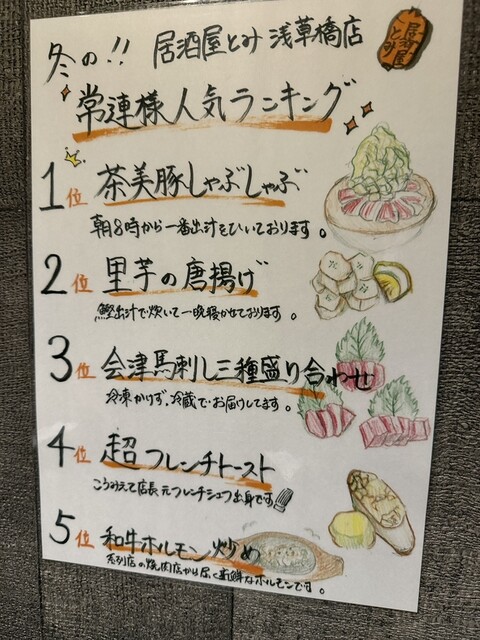 冬の!! 居酒屋とみ 浅草橋店
居酒屋
とみ
常連様人気ランキング
1位 茶美豚しゃぶしゃぶ
朝8時から一番出汁をひいております。
2位 里芋の唐揚げ
鰹出汁で炊いて一晩寝かせております。
3位 会津馬刺し三種盛り合わせ
冷凍かけず、冷蔵でお届けしてます。
4位 超フレンチトースト
こうみえて店長、元フレンチシェフ出身です
5位 和牛ホルモン炒め
系列店の焼肉店から届く新鮮なホルモンです。